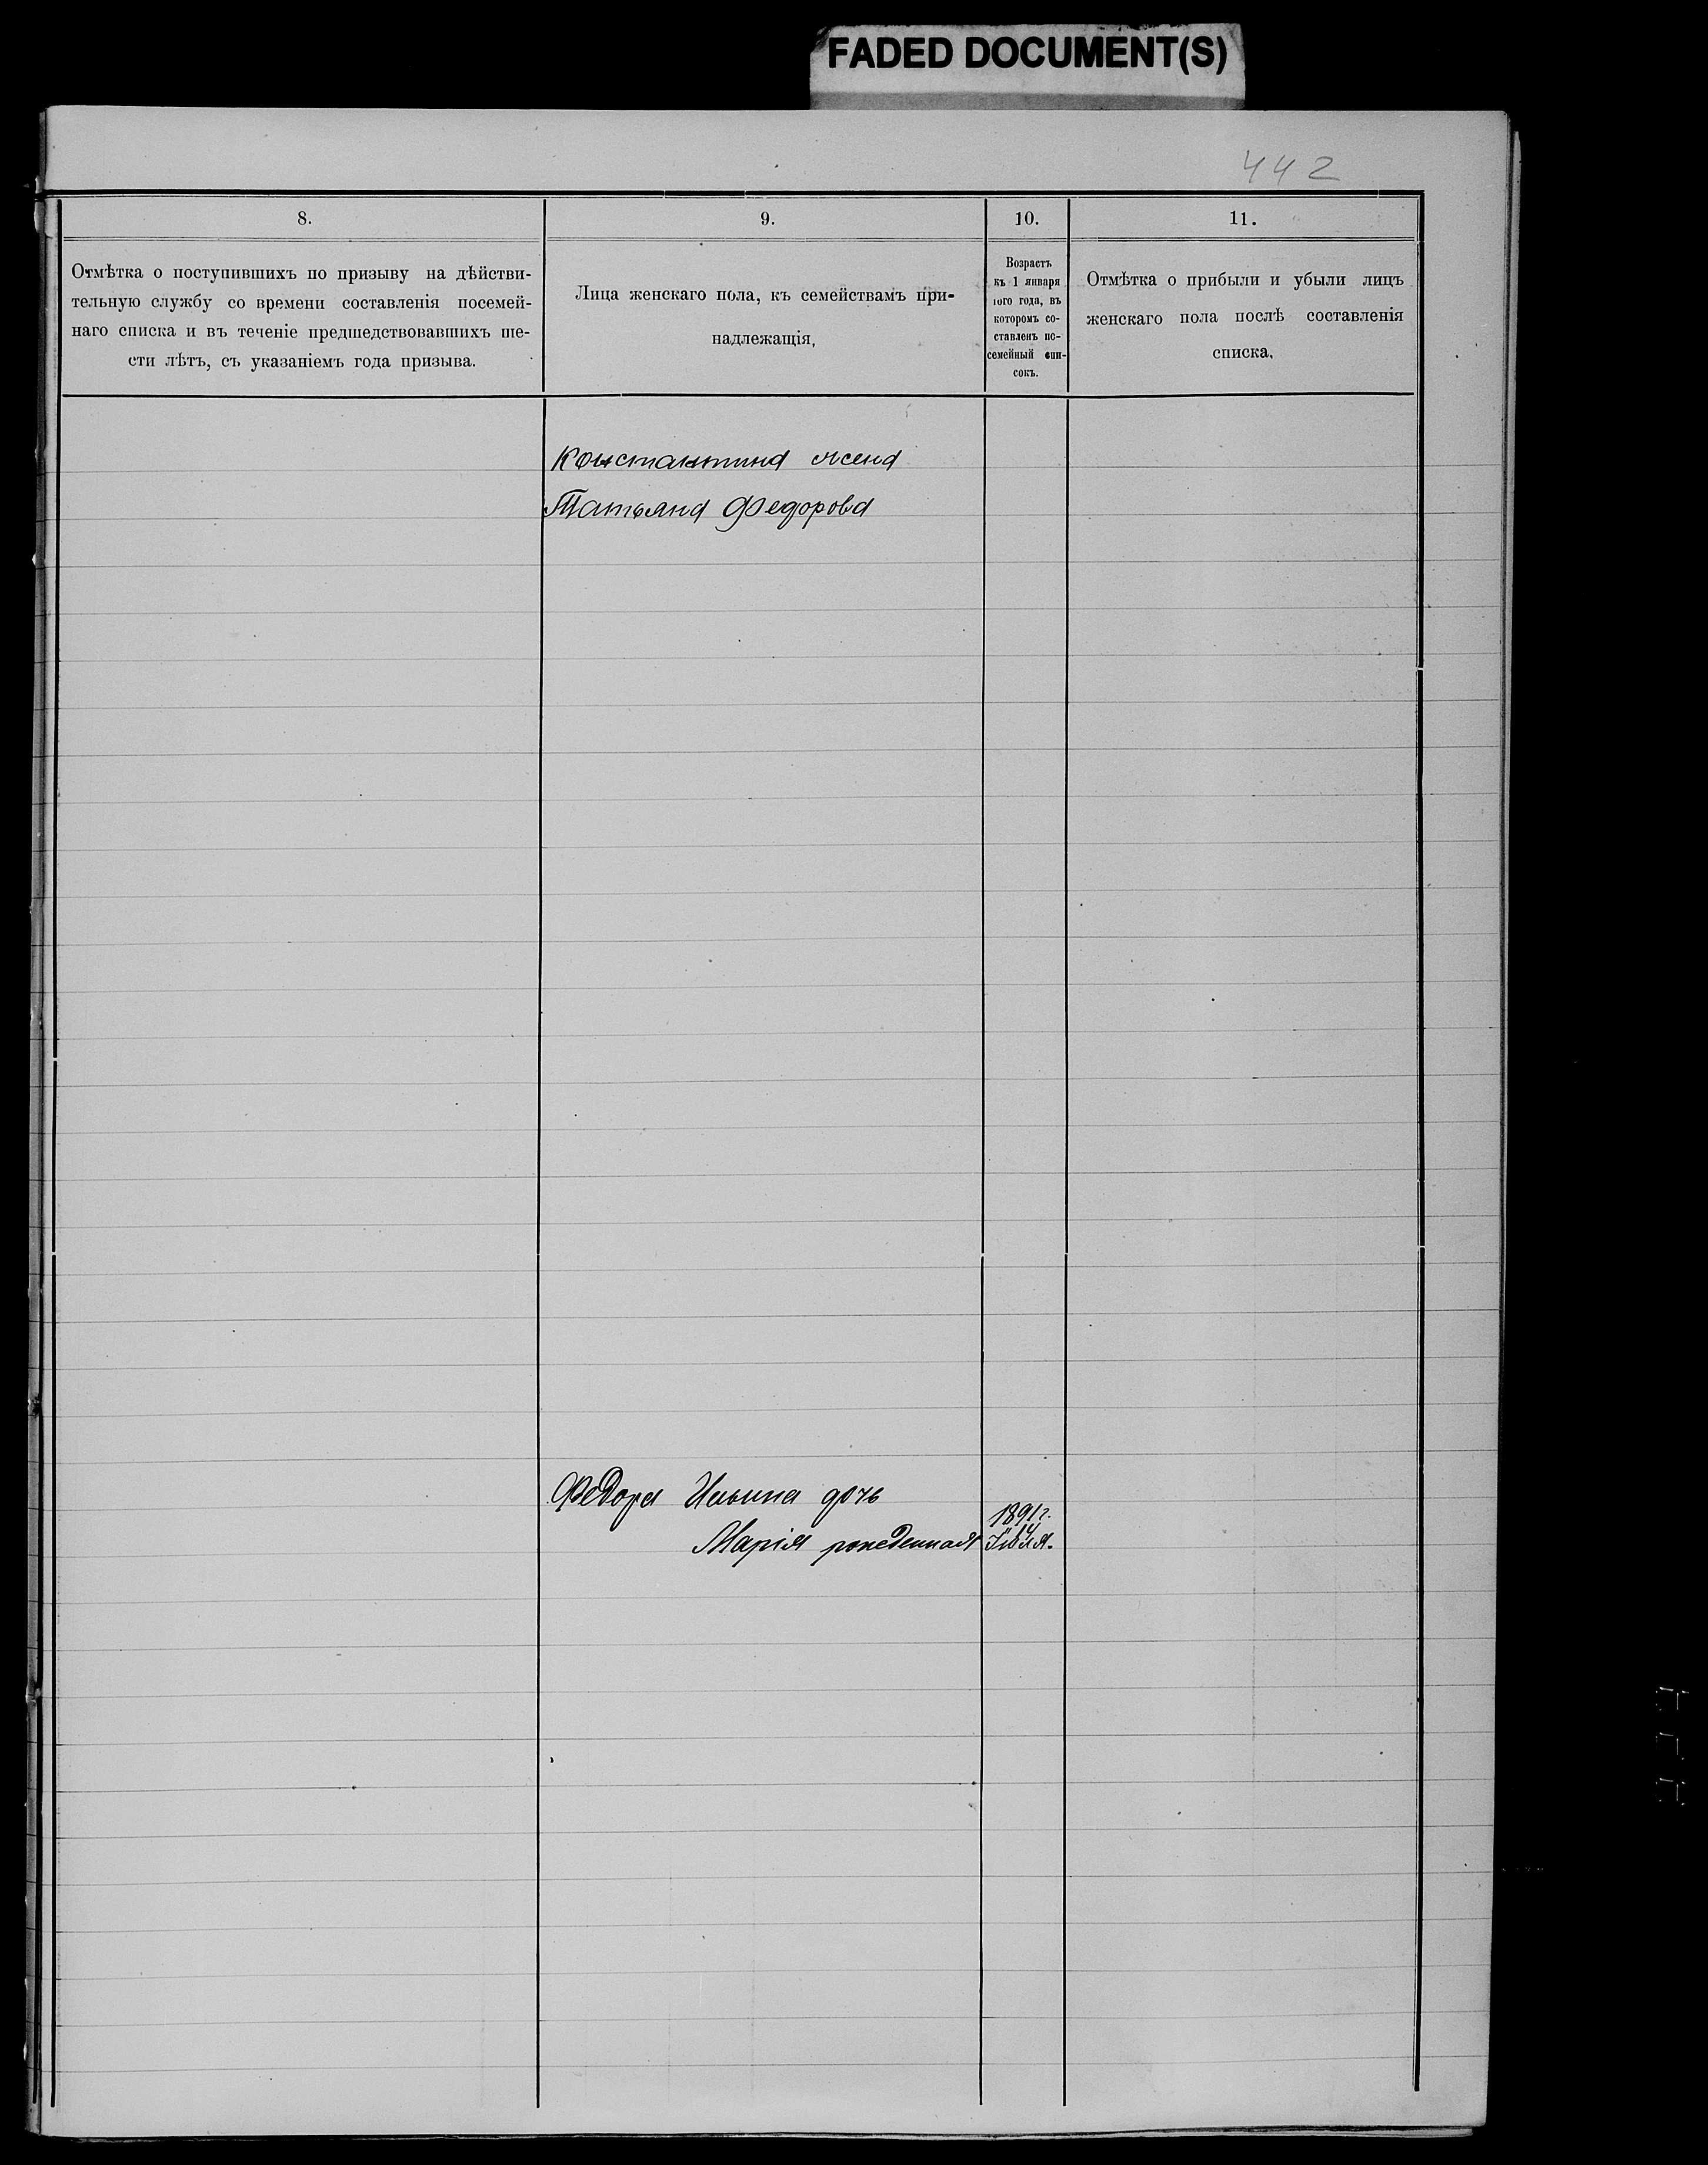 FADED DOCUMENT(S)
442
8.
9.
10.
11.
Отмѣтка о поступившихъ по призыву на дѣйстви-
тельную службу со времени составленія посемей-
наго списка и въ теченіе предшедствовавшихъ ше-
сти лѣтъ, съ указаніемъ года призыва.
Лица женскаго пола, къ семействамъ при-
надлежащія,
Возрастъ
къ 1 января
того года, въ
которомъ со-
ставленъ по-
семейный спи-
сокъ.
Отмѣтка о прибыли и убыли лицъ
женскаго пола послѣ составленія
списка.
Константина жена
Татьяна Федорова
Федора Ильина дочь
1891г.
Марія рожденная
14
Іюля.